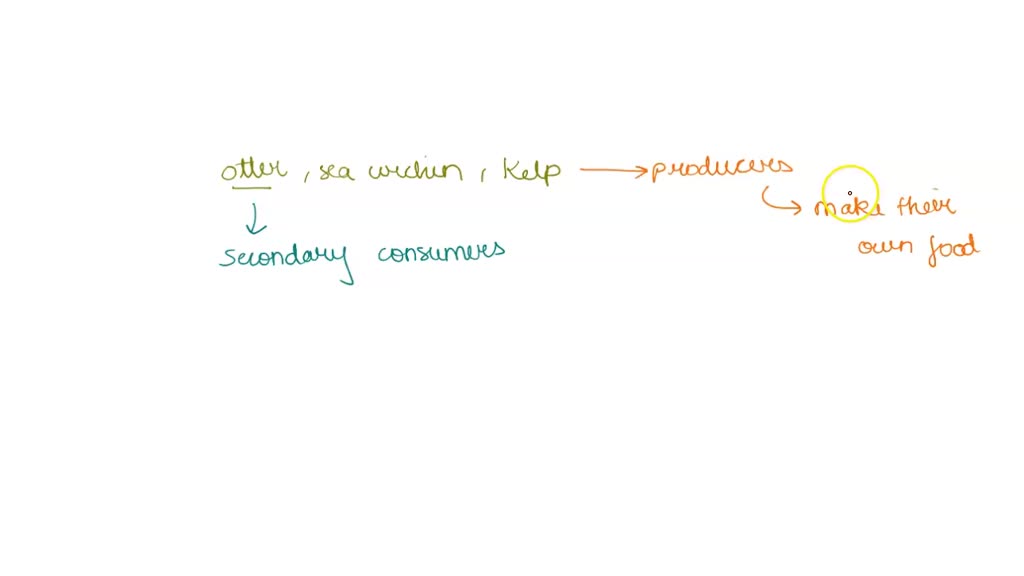 otter, sea urchin, Kelp → producers
make their
own food
secondary consumers